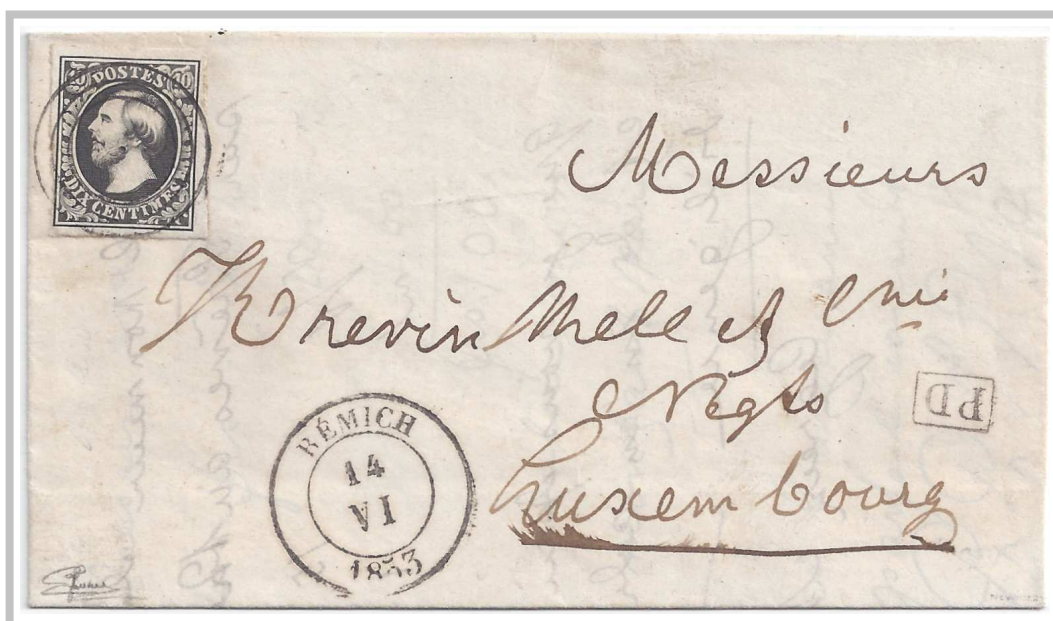 POSTES
10
DIX CENTIMES
Messieurs
Krevin Mele et
Negts
PD
Luxembourg
RÉMICH
14
VI
1853